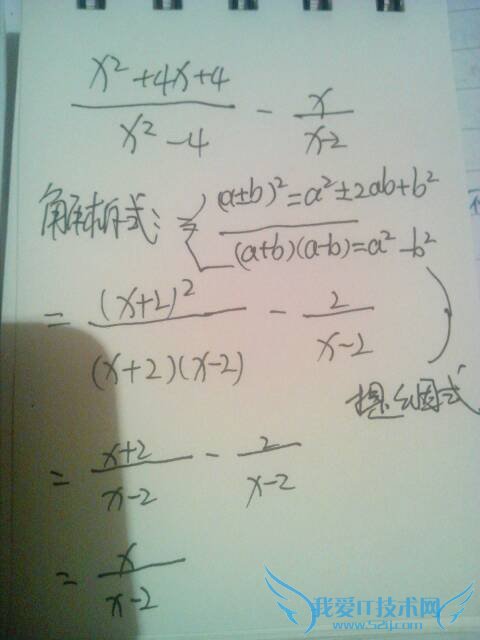 x²+4x+4 / x²-4 - x / x-2
解析式: (a±b)²=a²±2ab+b²
(a+b)(a-b)=a²-b²
= (x+2)² / (x+2)(x-2) - 2 / x-2
提公因式
= x+2 / x-2 - 2 / x-2
= x / x-2
我爱IT技术网
www.52ij.com